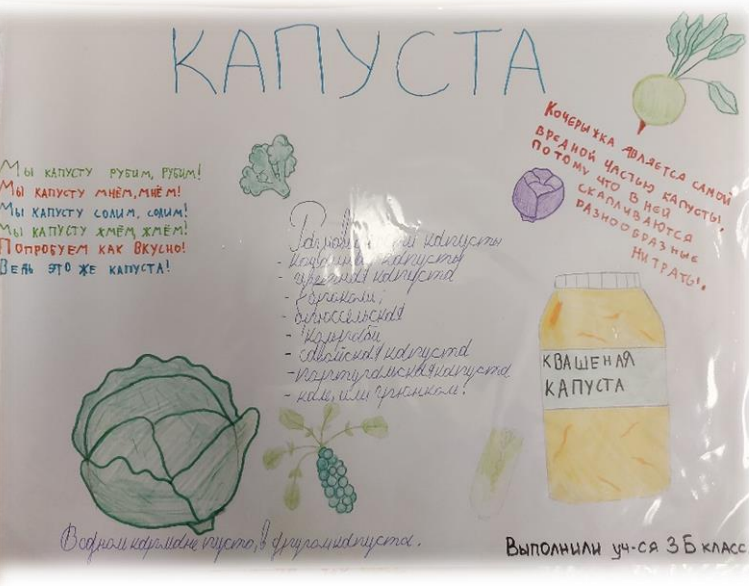 КАПУСТА
Мы капусту рубим, рубим!
Мы капусту мнём, мнём!
Мы капусту солим, солим!
Мы капусту жмём, жмём!
Попробуем как вкусно!
Ведь это же капуста!
Кочерыжка является самой
вредной частью капусты,
потому что в ней
скапливаются
разнообразные
нитраты.
капусты
капуста
- цветная капуста
- брокколи;
- брюссельская
- кольраби
- савойская капуста
- португальская капуста
- кале, или грюнколь.
КВАШЕНАЯ
КАПУСТА
В одном кармане пусто, в другом капуста.
Выполнили уч-ся 3Б класс